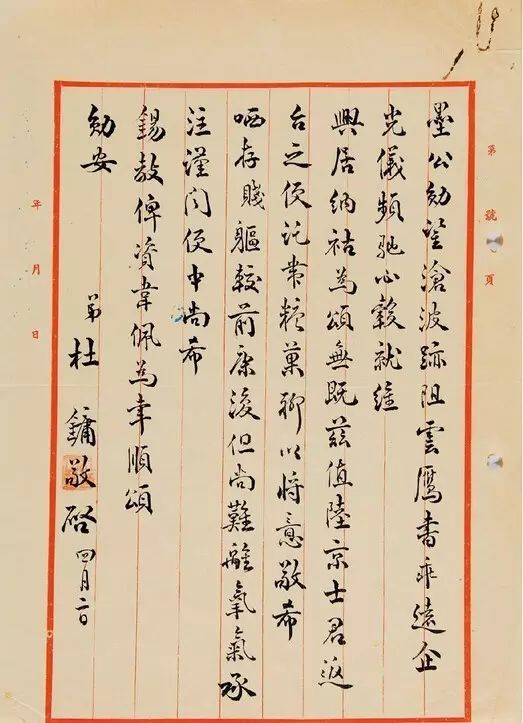 第 號 頁
墨公勛鑒滄波跡阻雲鴈書乖遠企
光儀頻馳心轂就維
興居納祜為頌無既茲值陸京士君返
台之便託帶糖菓聊以將意敬希
哂存賤軀較前康復但尚難離氧氣承
注謹聞便中尚希
錫教俾資韋佩為幸順頌
勛安
弟 杜鏞敬啓 四月二日
年 月 日